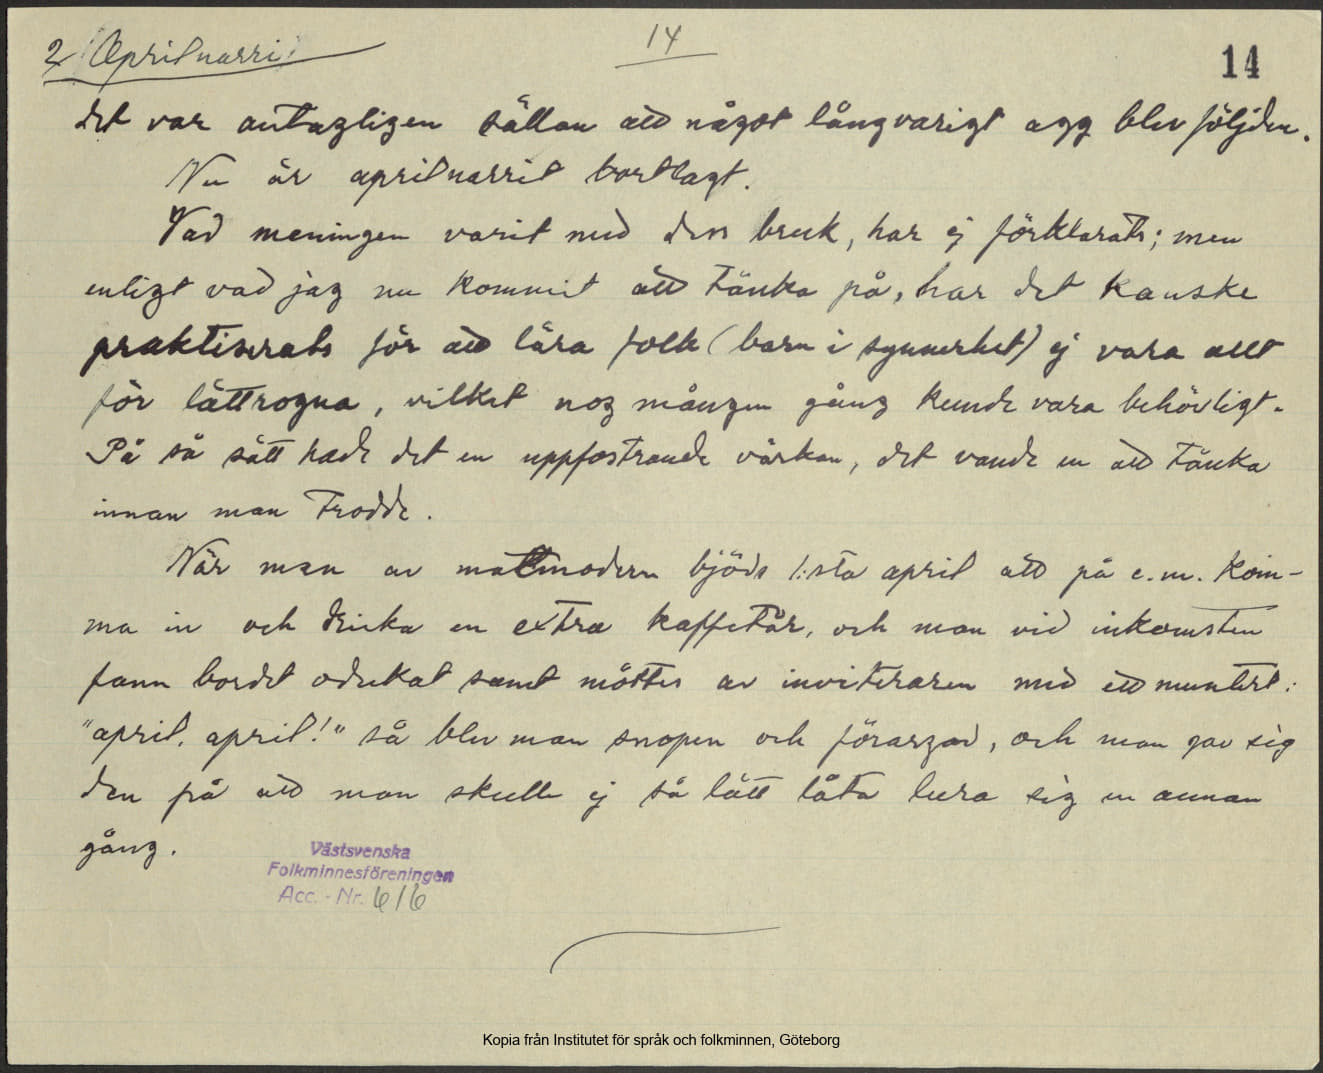 2 (Aprilnarri)
14
14
det var antagligen sällan att något långvarigt agg blev följden.
Nu är aprilnarrit bortlagt.
Vad meningen varit med den bruk, har ej förklarats; men
enligt vad jag nu kommit att tänka på, har det kanske
praktiserats för att lära folk (barn i synnerhet) ej vara allt
för lättrogna, vilket nog mången gång kunde vara behövligt.
På så sätt hade det en uppfostrande värkan, det vande en att tänka
innan man trodde.
När man av matmodern bjöds 1:sta april att på e.m. kom-
ma in och dricka en extra kaffetår, och man vid inkomsten
fann bordet odukat samt möttes av inviteraren med ett muntert:
"april, april!" så blev man snopen och förargad, och man gav sig
den på att man skulle ej så lätt låta lura sig en annan
gång.
Västsvenska
Folkminnesföreningen
Acc. - Nr. 616
Kopia från Institutet för språk och folkminnen, Göteborg